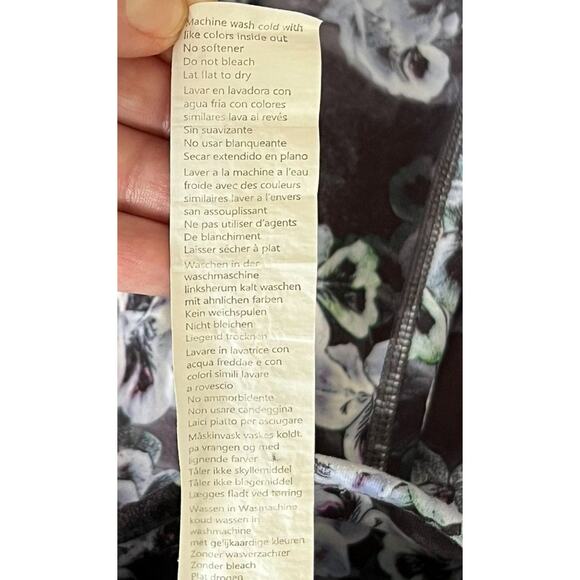 Machine wash cold with
like colors inside out
No softener
Do not bleach
Lat llat to dry
Lavar en lavadora con
agua fria con colores
similares lava al revés
Sin suavizante
No usar blanqueante
Secar extendido en plano
Laver a la machine a l'eau
froide avec des couleurs
similaires laver a l'envers
san assouplissant
Ne pas utiliser d'agents
De blanchiment
Laisser sécher à plat
Waschen in der
waschmaschine
linksherum kalt waschen
mit ahnlichen farben
Kein weichspulen
Nicht bleichen
Liegend trocknen
Lavare in lavatrice con
acqua freddae e con
colori simili lavare
a rovescio
No ammorbidente
Non usare candeggina
Laici piatto per asciugare
Måskinvask vaskes koldt.
pa vrangen og med
lignende farver
Tåler ikke skyllemiddel
Tåler ikke blegemiddel
Lægges fladt ved tørring
Wassen in Wasmachine
koud wassen in
washmachine
met ge'ijkaardige kleuren
Zonder wasverzachrer
Zonder bleach
Plat drogen